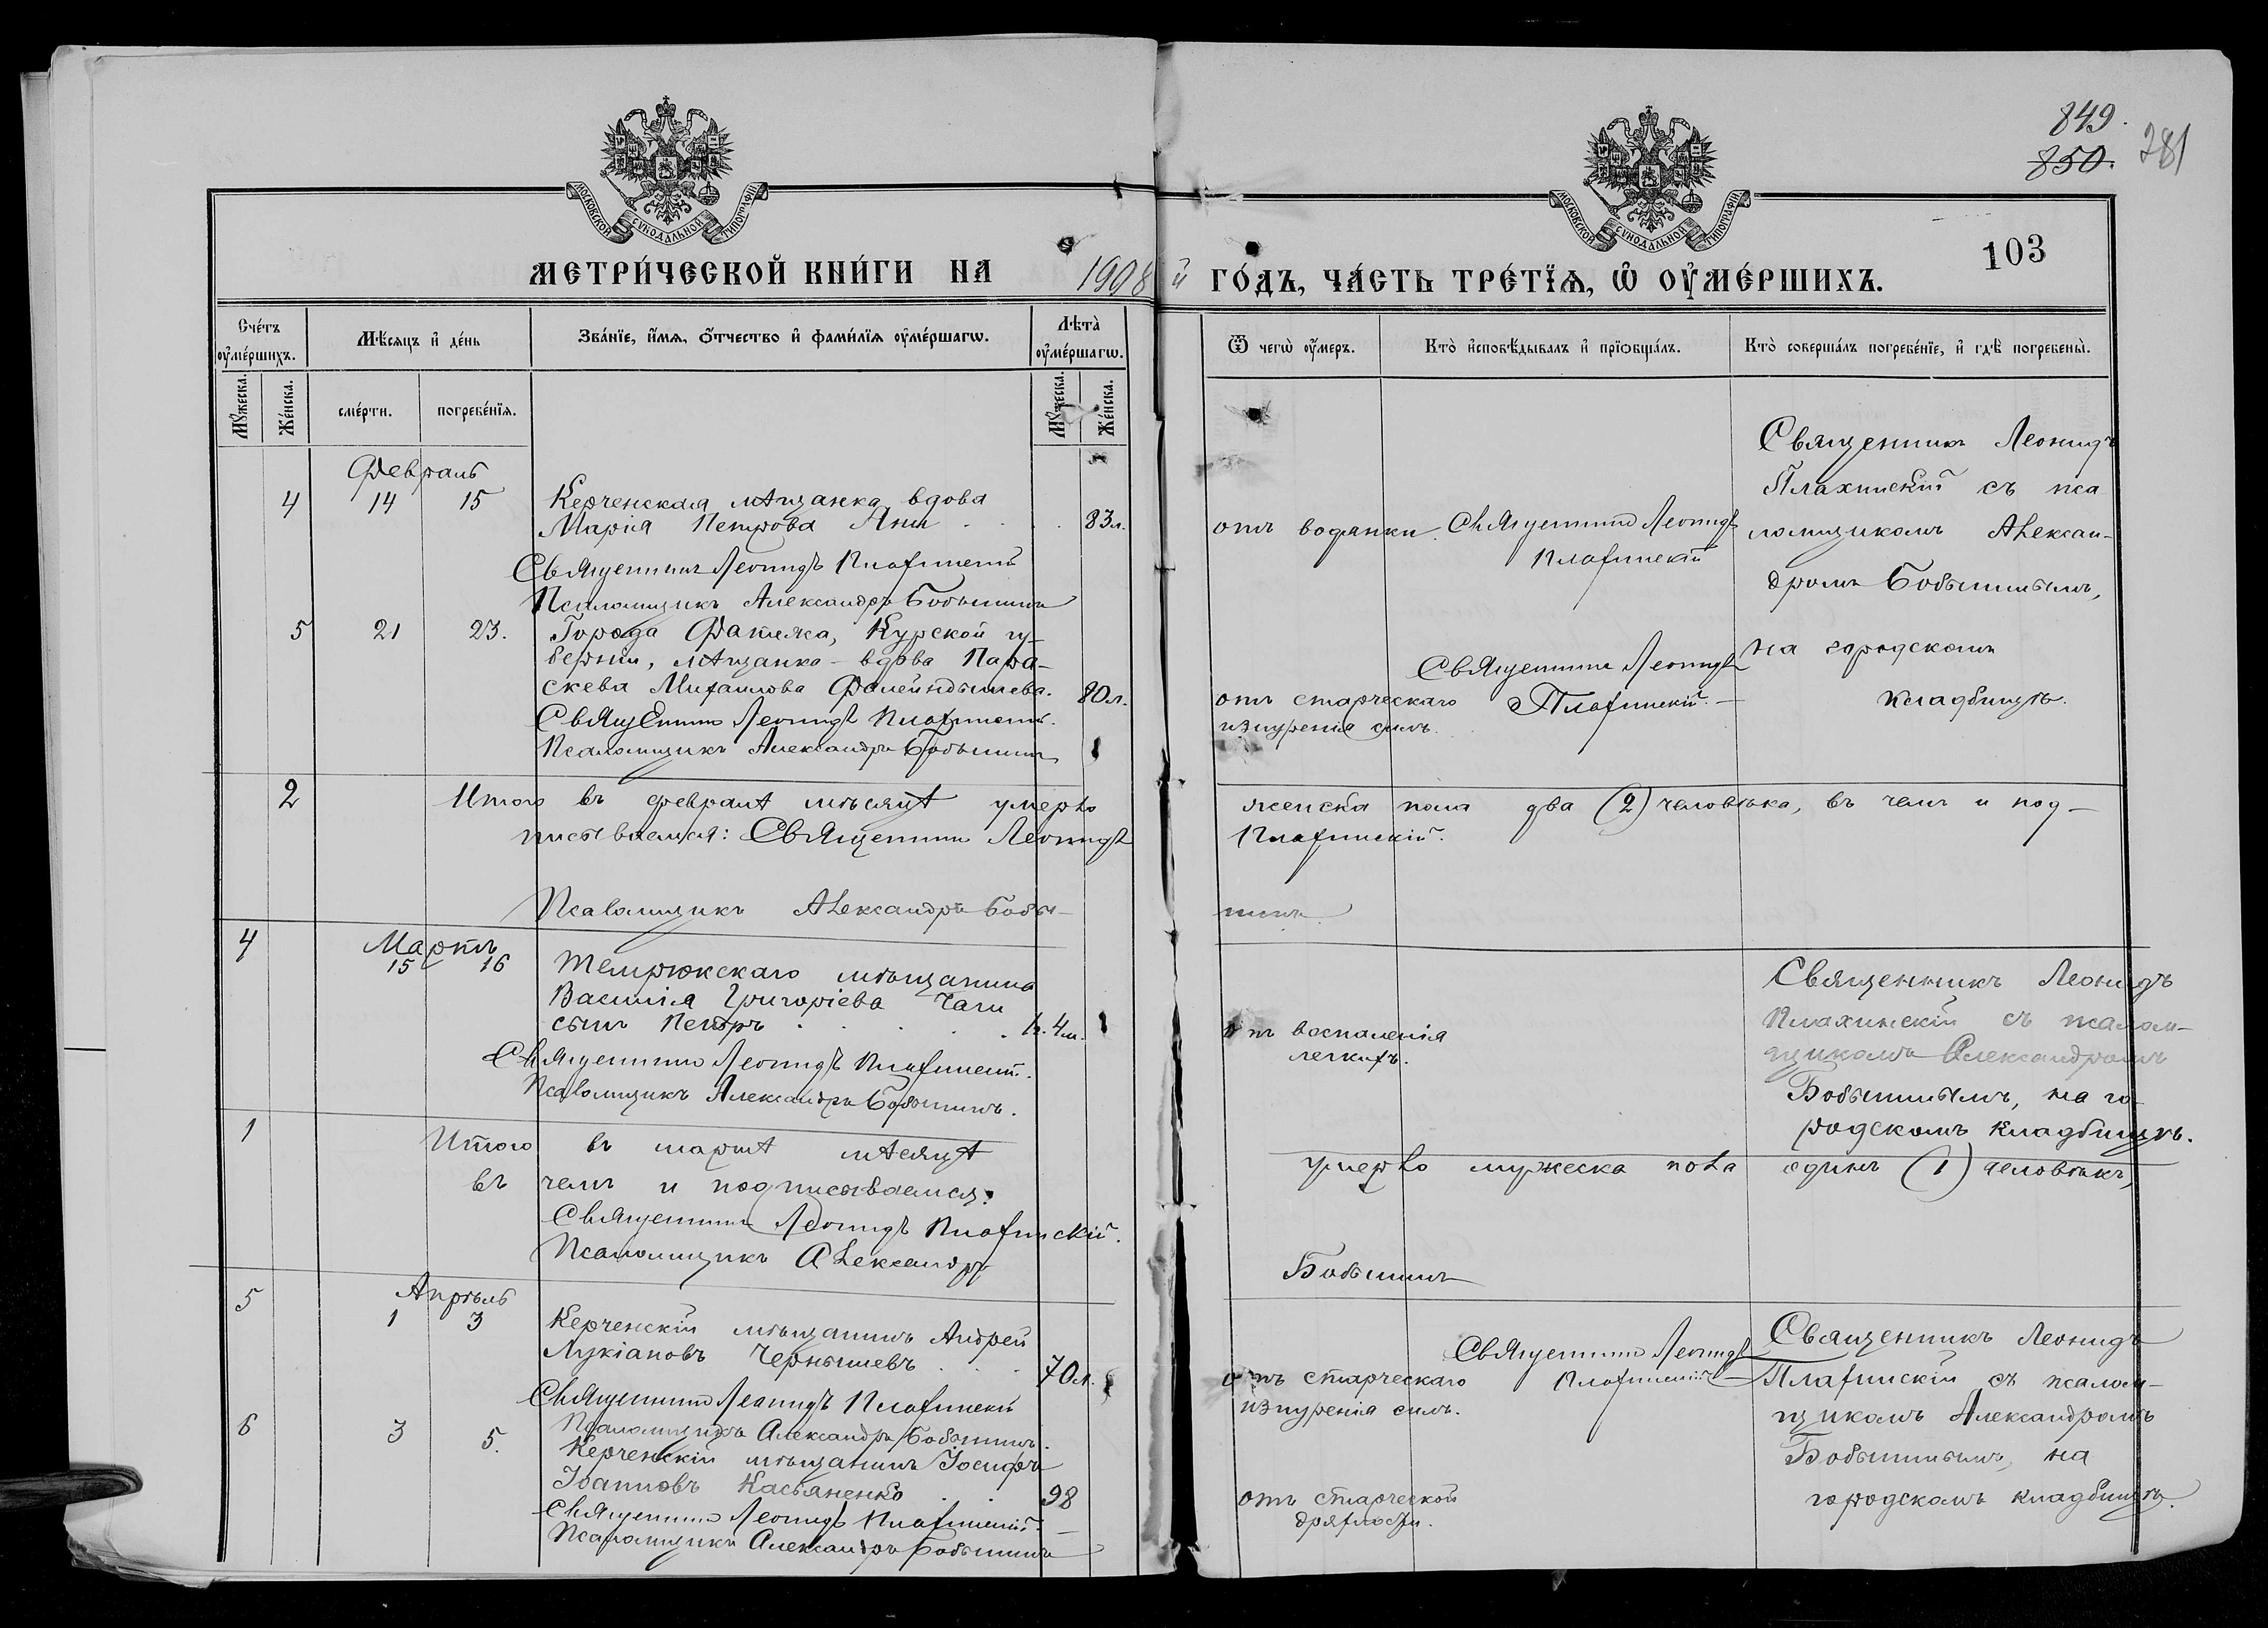 849.
850.
281
103
МОСКОВСКОЙ СѴНОДАЛЬНОЙ ТИПОГРАФІИ
МОСКОВСКОЙ СѴНОДАЛЬНОЙ ТИПОГРАФІИ
МЕТРИ́ЧЕСКОЙ КНИ́ГИ НА 1908 й ГО́ДЪ, ЧА́СТЬ ТРЕ́ТЇѦ, Ѡ҆ ОУ҆МЕ́РШИХЪ.
Сче́тъ оу҆ме́ршихъ.
Мѣ́сяцъ и҆ де́нь
Зва́нїе, и҆́мѧ, ѻ҆́тчество и҆ фами́лїѧ оу҆ме́ршагѡ.
Лѣта̀ оу҆ме́ршагѡ.
Ѿ чегѡ̀ оу҆́меръ.
Кто̀ и҆сповѣ́дывалъ и҆ прїѡбща́лъ.
Кто̀ соверша́лъ погребе́нїе, и҆ гдѣ̀ погребены̀.
Мꙋ́жеска.
Же́нска.
сме́рти.
погребе́нїѧ.
Мꙋ́жеска.
Же́нска.
Февраль
4 14 15 Керченская мѣщанка вдова
Марія Петрова . . . 83 л.
Священникъ Леонидъ Плахинскій
Псаломщикъ Александръ Бобышинъ
отъ водянки.
Священникъ Леонидъ
Плахинскій
Священникъ Леонидъ
Плахинскій съ пса
ломщикомъ Алексан-
дромъ Бобышинымъ,
на городскомъ
кладбищѣ.
5 21 23. Города Фатежа, Курской гу-
берніи, мѣщанка - вдова Пара-
скева Михаилова 80 л.
Священникъ Леонидъ Плахинскій.
Псаломщикъ Александръ Бобышинъ
отъ старческаго
изнуренія силъ.
Священникъ Леонидъ
Плахинскій. -
2 Итого въ февралѣ мѣсяцѣ умерло женска пола два (2) человѣка, въ чемъ и под-
писываемся: Священникъ Леонидъ Плахинскій.
Псаломщикъ Александръ Бобы-
шинъ.
Мартъ
4 15 16 Темрюкскаго мѣщанина
Василія Григоріева
сынъ Петръ . . . . 4 м.
Священникъ Леонидъ Плахинскій.
Псаломщикъ Александръ Бобышинъ.
отъ воспаленія
легкихъ.
Священникъ Леонидъ
Плахинскій съ псалом-
щикомъ Александромъ
Бобышинымъ, на го-
родскомъ кладбищѣ.
1 Итого въ мартѣ мѣсяцѣ умерло мужеска пола одинъ (1) человѣкъ,
въ чемъ и подписываемся:
Священникъ Леонидъ Плахинскій.
Псаломщикъ Александръ Бобышинъ
Апрѣль
5 1 3 Керченскій мѣщанинъ Андрей
Лукіановъ Чернышевъ . . 70 л.
Священникъ Леонидъ Плахинскій
Псаломщикъ Александръ Бобышинъ.
отъ старческаго
изнуренія силъ.
Священникъ Леонидъ
Плахинскій -
Священникъ Леонидъ
Плахинскій съ псалом-
щикомъ Александромъ
Бобышинымъ, на
городскомъ кладбищѣ.
6 3 5. Керченскій мѣщанинъ Іосифъ
Іоанновъ Касьяненко . . 98
Священникъ Леонидъ Плахинскій. -
Псаломщикъ Александръ Бобышинъ
отъ старческой
дряхлости.